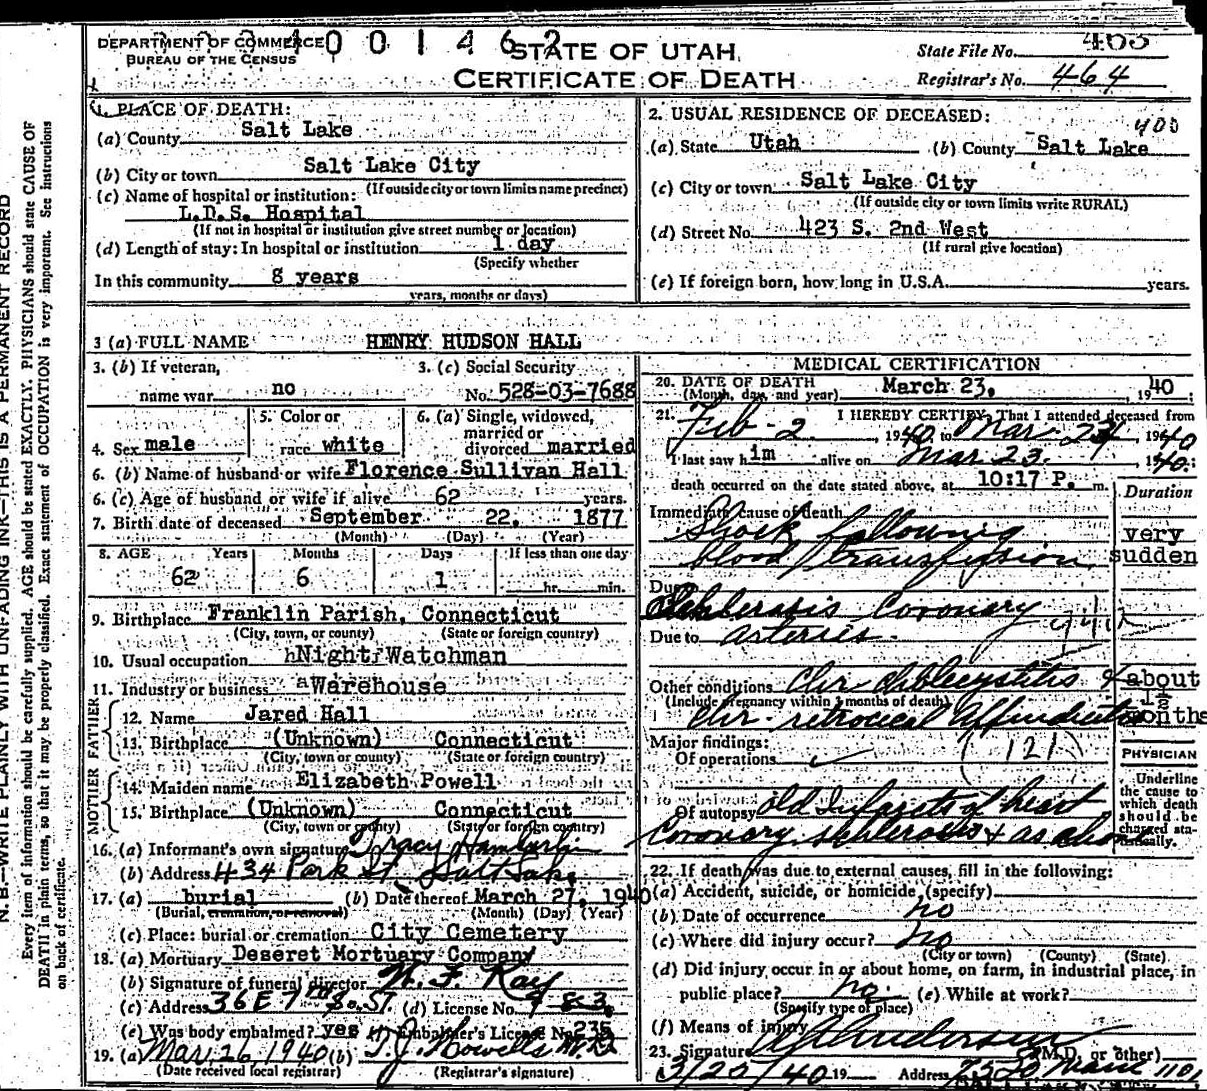 DEPARTMENT OF COMMERCE
BUREAU OF THE CENSUS
0 0 1 4 6 2
STATE OF UTAH
CERTIFICATE OF DEATH
State File No. 463
Registrar's No. 464
1. PLACE OF DEATH:
(a) County Salt Lake
(b) City or town Salt Lake City
(If outside city or town limits name precinct)
(c) Name of hospital or institution:
L.D.S. Hospital
(If not in hospital or institution give street number or location)
(d) Length of stay: In hospital or institution 1 day
(Specify whether
In this community 8 years
years, months or days)
2. USUAL RESIDENCE OF DECEASED:
400
(a) State Utah (b) County Salt Lake
(c) City or town Salt Lake City
(If outside city or town limits write RURAL)
(d) Street No. 423 S. 2nd West
(If rural give location)
(e) If foreign born, how long in U.S.A. years.
3 (a) FULL NAME HENRY HUDSON HALL
3. (b) If veteran,
name war no
3. (c) Social Security
No. 528-03-7688
4. Sex male
5. Color or
race white
6. (a) Single, widowed,
married or
divorced married
6. (b) Name of husband or wife Florence Sullivan Hall
6. (c) Age of husband or wife if alive 62 years.
7. Birth date of deceased September 22, 1877
(Month) (Day) (Year)
8. AGE Years Months Days If less than one day
62 6 1 hr. min.
9. Birthplace Franklin Parish, Connecticut
(City, town, or county) (State or foreign country)
10. Usual occupation Night Watchman
11. Industry or business Warehouse
FATHER
12. Name Jared Hall
13. Birthplace (Unknown) Connecticut
(City, town or county) (State or foreign country)
MOTHER
14. Maiden name Elizabeth Powell
15. Birthplace (Unknown) Connecticut
(City, town or county) (State or foreign country)
16. (a) Informant's own signature Tracy Hamberlin
(b) Address 434 Park St. Salt Lake
17. (a) burial (b) Date thereof March 27, 1940
(Burial, cremation, or removal) (Month) (Day) (Year)
(c) Place: burial or cremation City Cemetery
18. (a) Mortuary Deseret Mortuary Company
(b) Signature of funeral director
(c) Address 36 E 7th So. St. (d) License No.
(e) Was body embalmed? yes (f) Embalmer's License No. 235
19. (a) Mar 26 1940 (b) T.J. Howells M.D
(Date received local registrar) (Registrar's signature)
MEDICAL CERTIFICATION
20. DATE OF DEATH March 23, 1940
(Month, day, and year)
21. I HEREBY CERTIFY, That I attended deceased from
Feb - 2, 1940, to Mar. 23, 1940
I last saw him alive on Mar 23, 1940;
death occurred on the date stated above, at 10:17 P. m.
Duration
Immediate cause of death
Shock following very
blood transfusion sudden
Due
Schlerosis Coronary
Due to arteries.
Other conditions Chr cholecystitis & about
(Include pregnancy within 3 months of death)
Chr. retrocecal Appendicitis months
Major findings:
Of operations
(121)
PHYSICIAN
Underline
the cause to
which death
should be
charged sta-
tistically.
Of autopsy old infarcts of heart
Coronary schlerosis & as above
22. If death was due to external causes, fill in the following:
(a) Accident, suicide, or homicide (specify)
(b) Date of occurrence no
(c) Where did injury occur? no
(City or town) (County) (State)
(d) Did injury occur in or about home, on farm, in industrial place, in
public place? no. (e) While at work?
(Specify type of place)
(f) Means of injury
23. Signature (M.D. or other)
3/25/40 19 Address
N.B.—WRITE PLAINLY WITH UNFADING INK—THIS IS A PERMANENT RECORD
Every item of information should be carefully supplied. AGE should be stated EXACTLY. PHYSICIANS should state CAUSE OF
DEATH in plain terms, so that it may be properly classified. Exact statement of OCCUPATION is very important. See Instructions
on back of certificate.